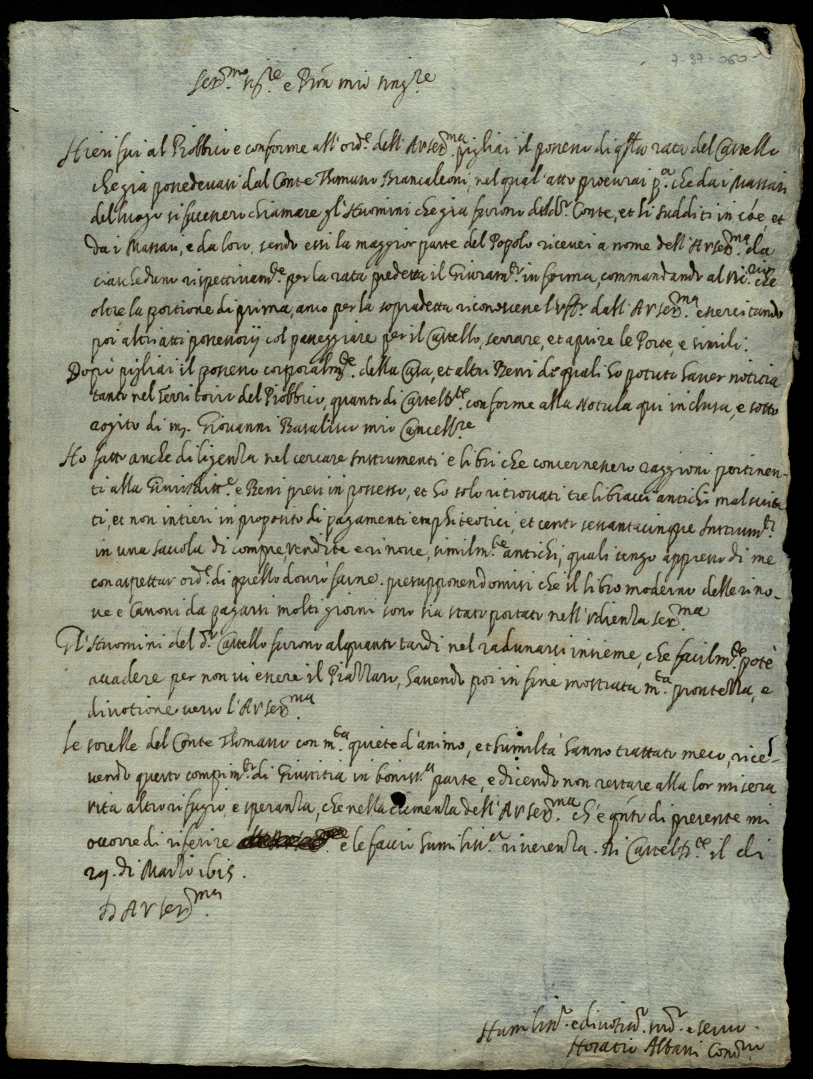 7-37-060-
Ser.mo sig.re e Pron mio sing.re
Hieri fui al Piobbico e conforme all'ord.e dell'A V Ser.ma pigliai il possesso di q.sta rata del Castello
che già possedevasi dal Conte Thomasso Brancaleoni, nel qual'atto procurai p.a che da i Massari
del luogo si facessero chiamare gl'Huomini che già furono del d.o Conte, et li sudditi in coe, et
da i Massari, e da loro, sendo essi la maggior parte del Popolo ricevei a nome dell'A V Ser.ma da
ciascheduno rispettivam.te per la rata predetta il Giuram.to in forma, commandando al Vic.rio che
oltre la portione di prima, anco per la sopradetta riconoscesse l'uff.o dall'A V Ser.ma essercitando
poi altri atti possessorij col passeggiare per il Castello, serrare, et aprire le Porte, e simili.
Dopò pigliai il possesso corporalm.te della Casa, et altri Beni de quali ho potuto haver notitia
tanto nel Territorio del Piobbico, quanto di Casteld.te conforme alla Notula qui inclusa, e sotto
rogito di m. Giovanni Basalisco mio Cancell.re
Ho fatto anche diligenza nel cercare Instrumenti e libri che concernessero raggioni pertinen-
ti alla Giurisditt.e e Beni presi in possesso, et ho solo ritrovati tre libracci antichi mal scrit-
ti, et non intieri in proposito di pagamenti emphiteotici, et cento sessantacinque Instrum.ti
in una saccola di compre, vendite e rinove, similm.te antichi, quali tengo appresso di me
con aspettar ord.e di quello dovrò farne. presupponendomisi che il libro moderno delle rino-
ve e Canoni da pagarsi molti giorni sono sia stato portato nell'Udienza Ser.ma
Gl'Huomini del d.o Castello furono alquanto tardi nel radunarsi insieme, che facilm.te potè
accadere per non vi essere il Piazzaro, havendo poi in fine mostrata m.ta prontezza, e
divotione verso l'A V Ser.ma
Le sorelle del Conte Thomasso con m.ta quiete d'animo, et humiltà hanno trattato meco, rice-
vendo questo compim.to di Giustitia in boniss.a parte, e dicendo non restare alla lor misera
vita altro rifugio e speranza, che nella clemenza dell'A V Ser.ma ch'è q.nto di presente mi
occorre di riferire e le faccio humiliss.a riverenza. Di Casteld.te il dì
29. di Marzo 1615.
D A V Ser.ma
Humiliss.o e divotiss.o sud.o e servo
Horatio Albani